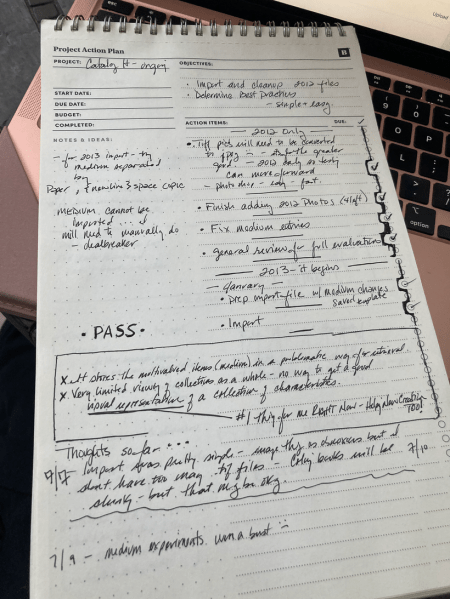 Project Action Plan
B
PROJECT: Catalog It - ongoing
OBJECTIVES:
• Import and cleanup 2012 files
• Determine Best Practices
- simple + easy
START DATE:
DUE DATE:
BUDGET:
COMPLETED:
NOTES & IDEAS:
ACTION ITEMS:
DUE:
- for 2013 import - try
medium separated
by
Paper, + newline 3 space
MEDIUM cannot be
imported ...
will need to manually do
- dealbreaker
2012 Only
• Tiff pics will need to be converted
to jpg - the greater
good - 2012 only so
can move forward
- photo - easy - fast
• Finish adding 2012 Photos
• Fix medium entries
• general review for full evaluation
2013 - it begins
January
• Prep import file w/ medium changes
saved template
• Import
• PASS •
X It stores the multivalued items (medium) in a problematic way for retrieval.
X Very limited views of collections as a whole - no way to get a good
visual representation of a collection of characteristics.
#1 thing for me Right Now - Help New Creating
TOO!
Thoughts so far ...
7/7 Import was pretty simple - image
don't have too many tif files - will be 7/10
- but that may be okay.
7/9 - medium experiments were a bust :-
option